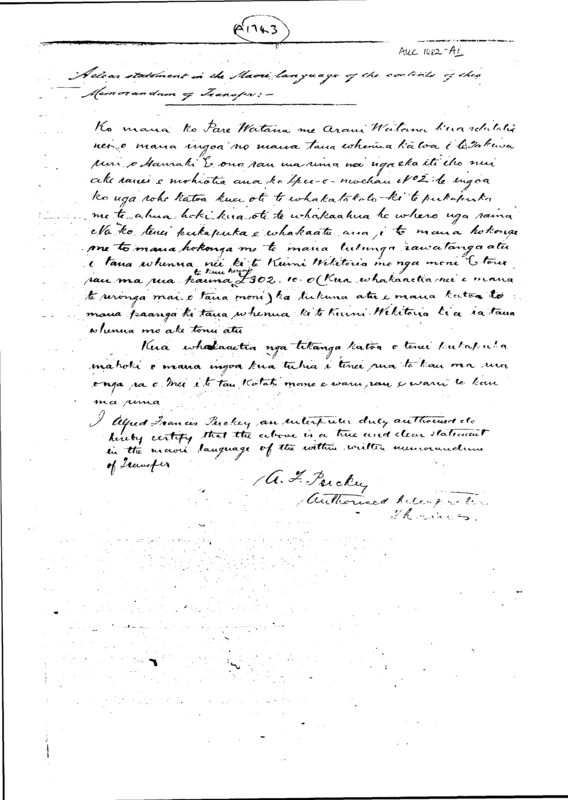 A1743
AUC 1482-A1
A clear statement in the Maori language of the contents of this
Memorandum of Transfer:-
Ko maua ko Pare Watana me Arani Watana kua
nei o maua ingoa no maua tana whenua katoa i te Takiwa
o Hauraki E ono rau ma rima nei nga eka iti iho nui
ake ranei e mohiotia ana ko No2 te ingoa
ko nga rohe katoa kua oti te whakatakoto ki te pukapuka
me te ahua hoki kua oti te whakaahua he whero nga raina
Na ko tenei pukapuka e whakaatu ana, i to maua hokonga
me to maua hokonga me to maua tukunga rawatanga atu
i taua whenua nei ki te Kuini Wikitoria mo nga moni E toru
rau ma rua pauna £302.10.0 (Kua whakaaetia nei e maua
te uronga mai o taua moni) ka tukuna atu e maua katoa to
maua paanga ki taua whenua ki te Kuini Wikitoria kia ia taua
whenua mo ake tonu atu
Kua whakaaetia nga tikanga katoa o tenei pukapuka
ma hoki o maua ingoa kua tuhia i tenei rua te kau ma
o nga ra o Mei i te tau Kotahi mano e waru rau e waru te kau
ma rima
I Alfred Francis Puckey an interpreter duly authorised do
hereby certify that the above is a true and clear statement
in the maori language of the within written memorandum
of Transfer
A. F. Puckey
Authorised Interpreter
Thames.